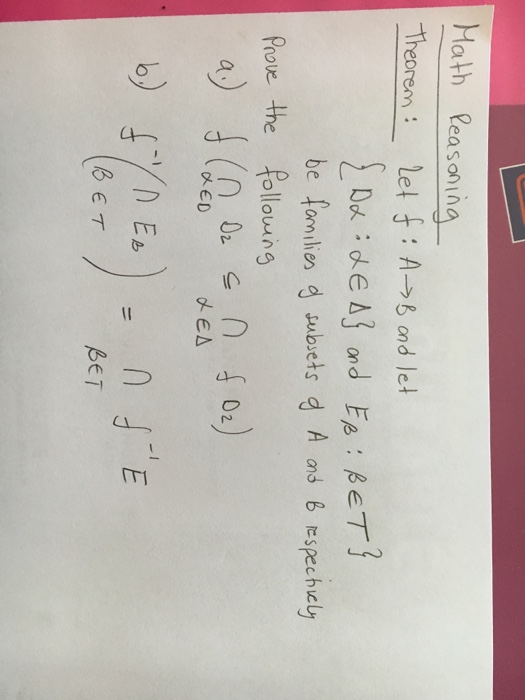 Math Reasoning
Theorem: Let f: A→B and let
{Dα : α∈Δ} and Eβ : β∈T}
be families of subsets of A and B respectively
Prove the following
a.) f(∩ D2 ⊆ ∩ f D2)
α∈D α∈Δ
b.) f⁻¹(∩ Eβ) = ∩ f⁻¹ E
β∈T β∈T